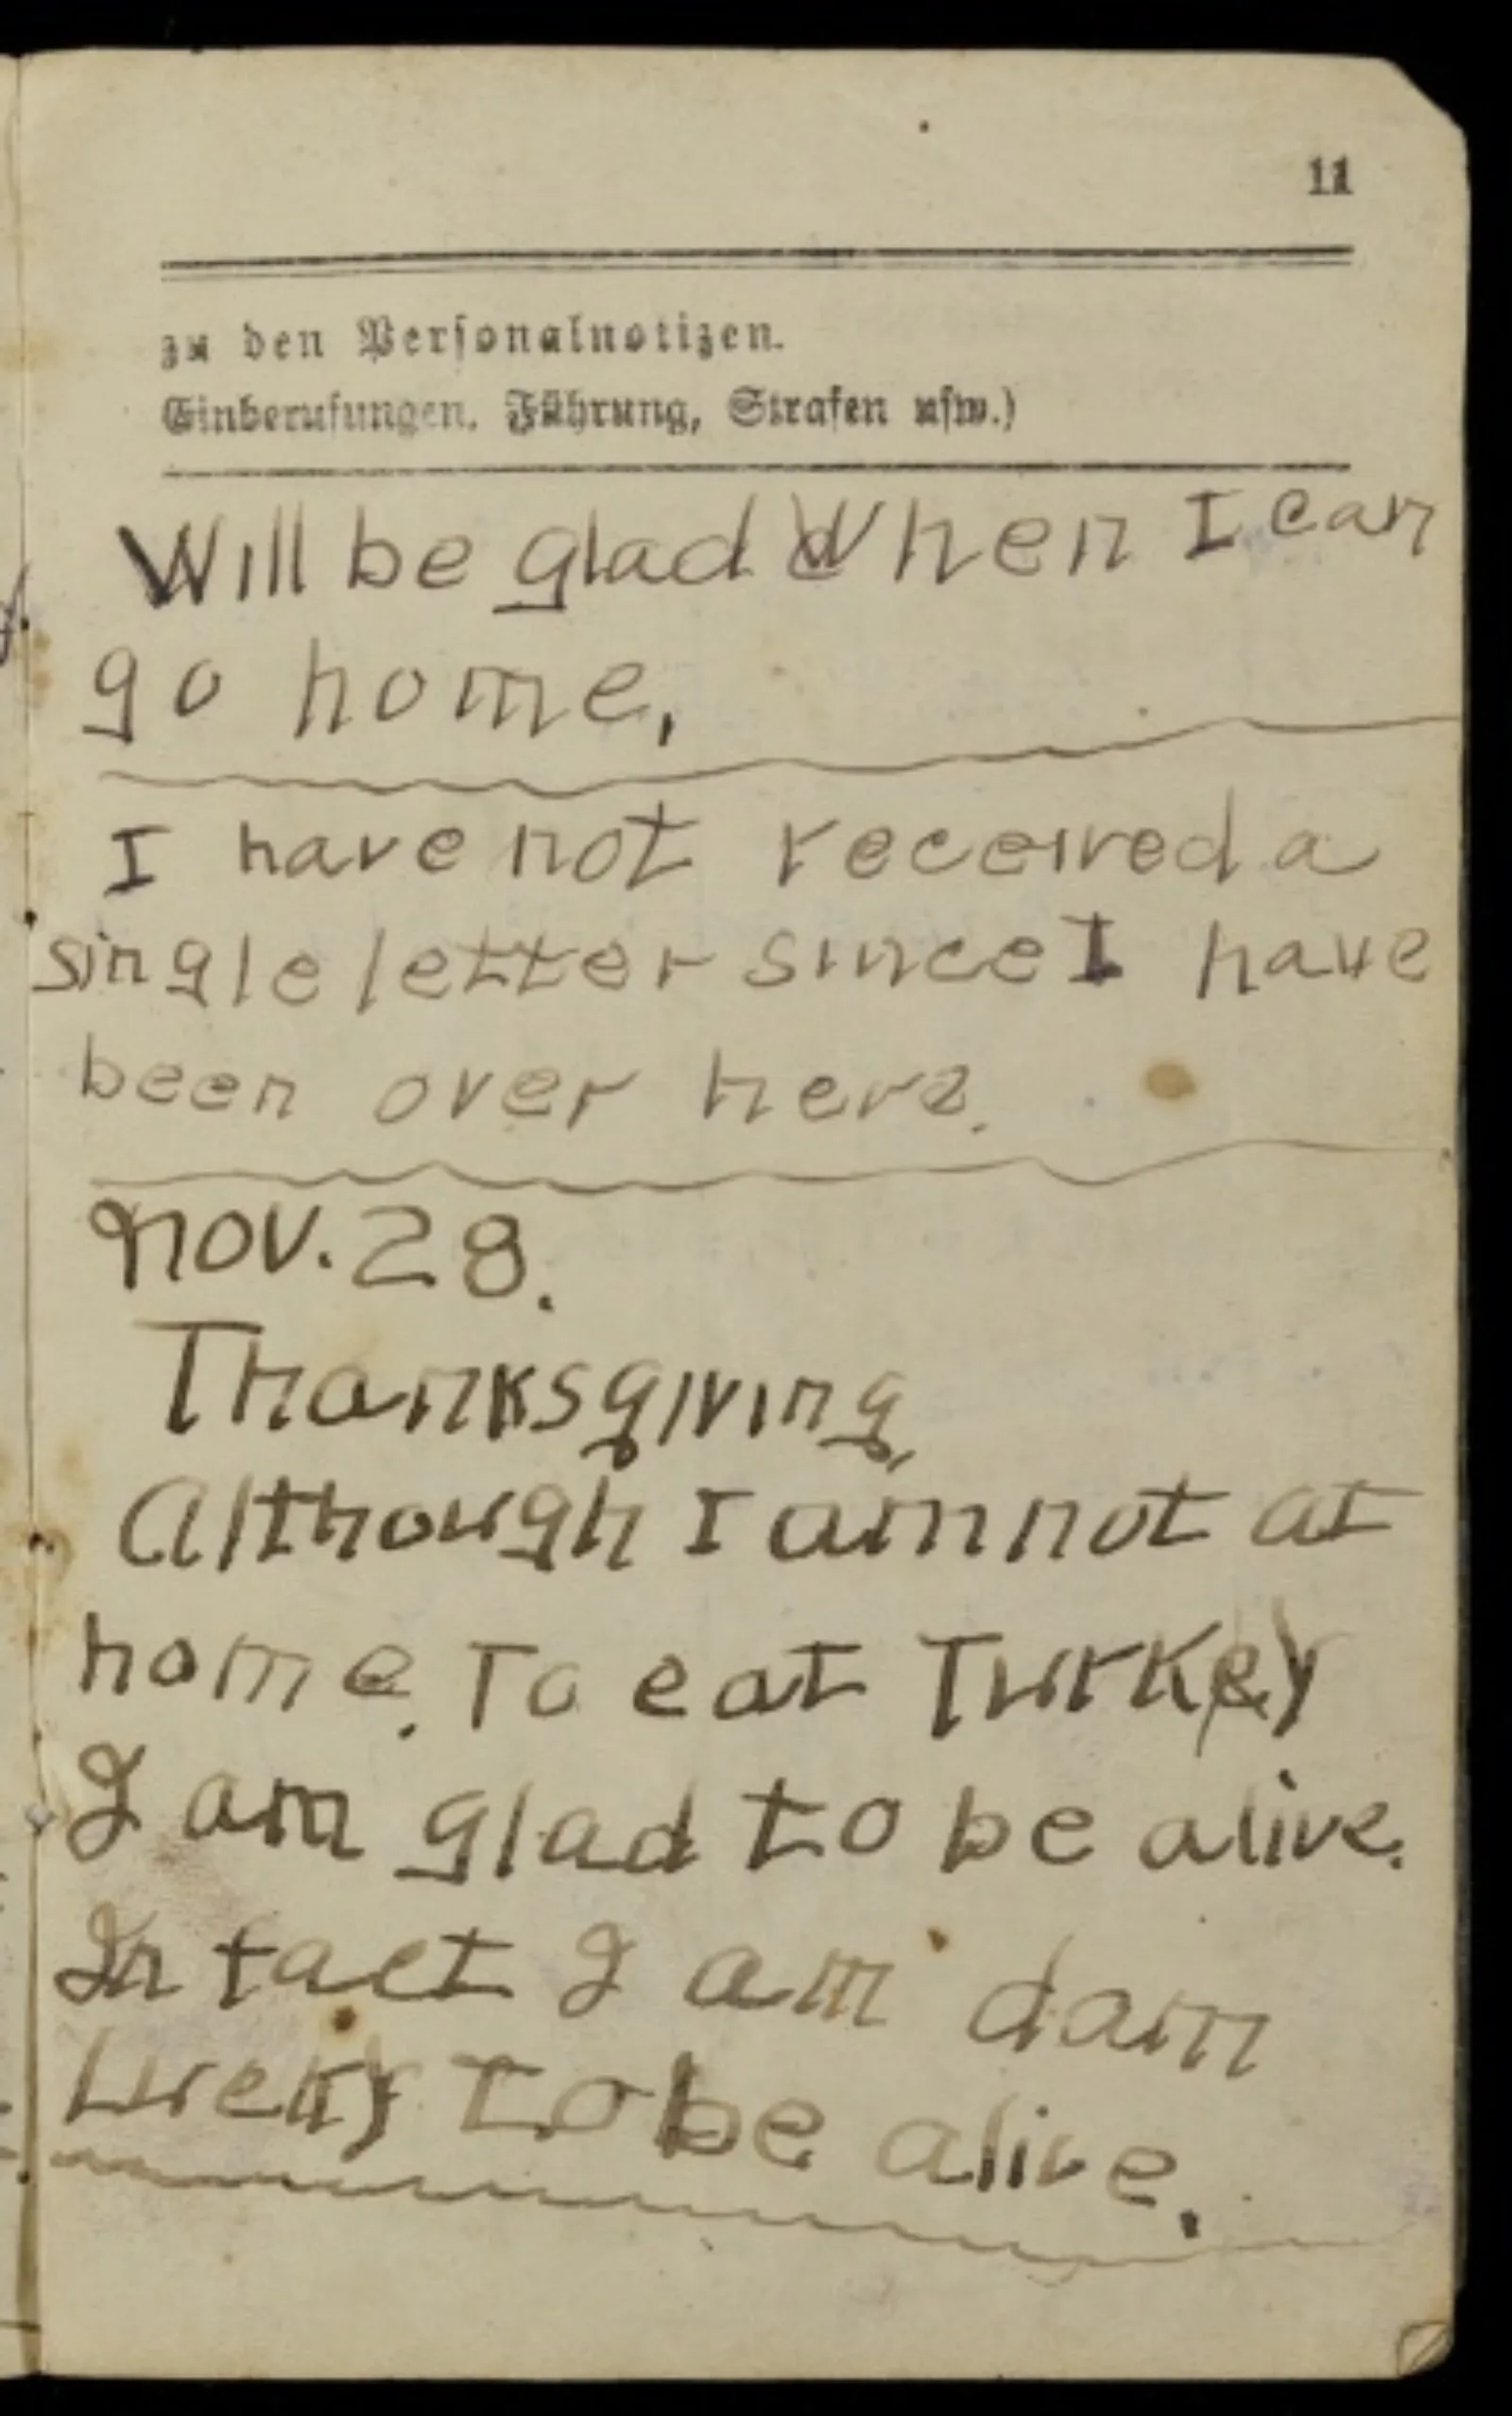 11
zu den Personalnotizen.
Einberufungen, Führung, Strafen usw.)
Will be glad When I can
go home.
I have not received a
single letter since I have
been over here.
Nov. 28.
Thanksgiving,
Although I am not at
home. To eat Turkey
I am glad to be alive.
In fact I am dam
Lucky to be alive.